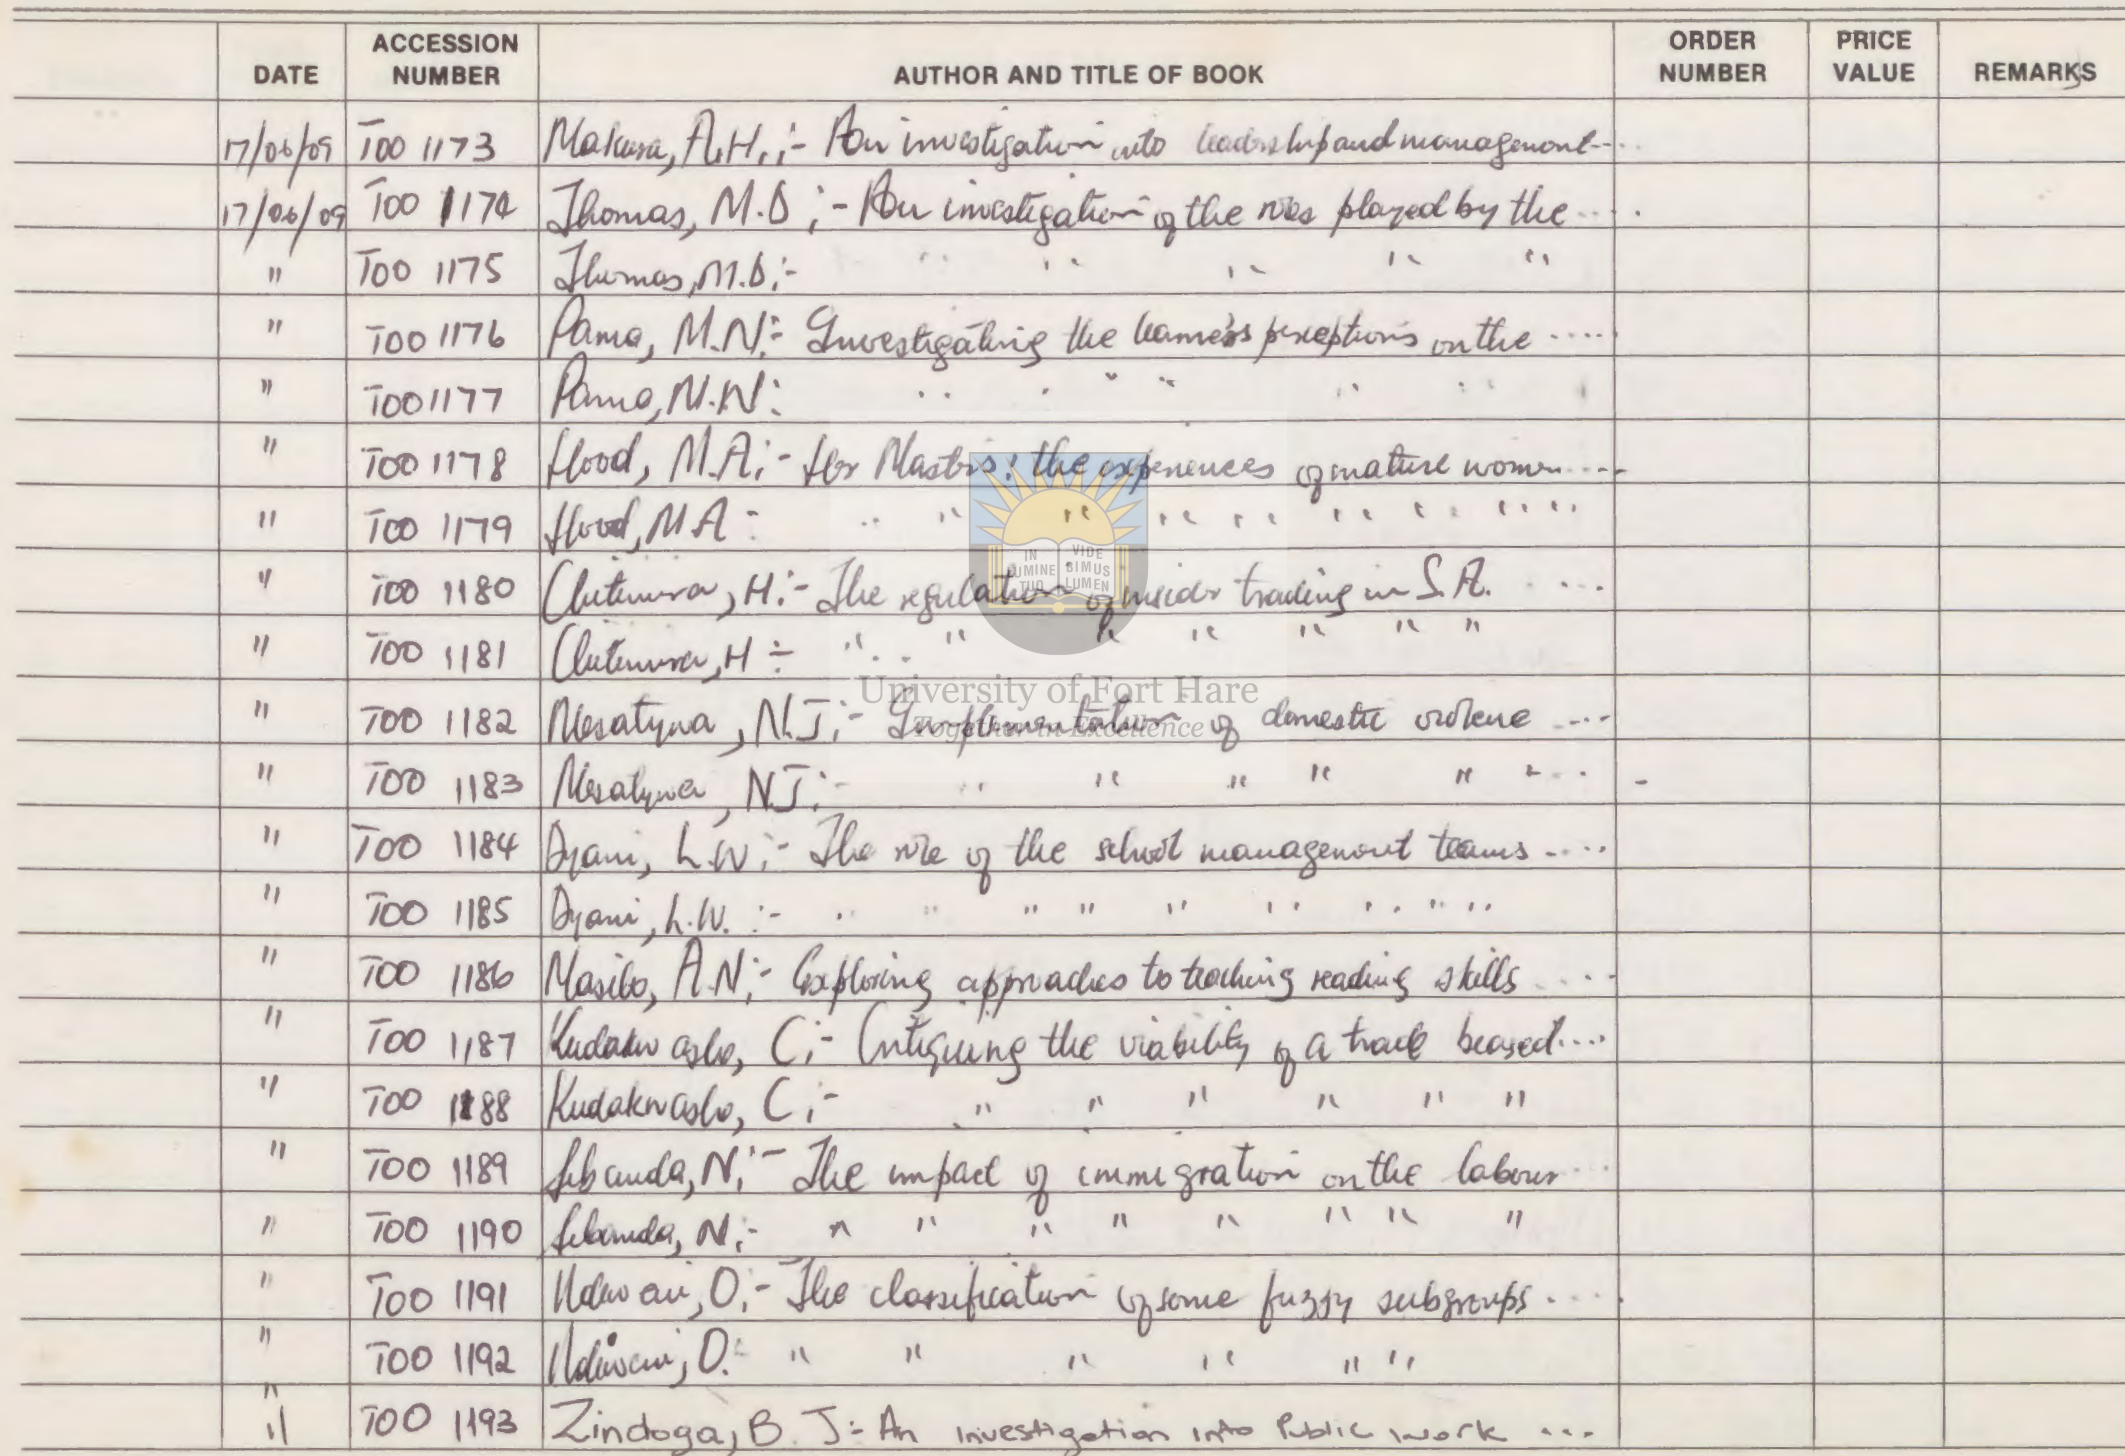 DATE ACCESSION NUMBER AUTHOR AND TITLE OF BOOK ORDER NUMBER PRICE VALUE REMARKS
17/06/09 T00 1173 Makura, A.H.:- An investigation into leadership and management ...
17/06/09 T00 1174 Thomas, M.D:- An investigation of the roles played by the ...
" T00 1175 Thomas, M.D:- " " " " "
" T00 1176 Pama, M.N:- Investigating the learners perceptions on the ....
" T00 1177 Pama, M.N: " " " " " " "
" T00 1178 Hood, M.A:- Her Masters: the experiences of mature women ....
" T00 1179 Hood, M.A:- " " " " " " " " " "
" T00 1180 Chitimira, H:- The regulation of insider trading in S.A. ....
" T00 1181 Chitimira, H:- " " " " " " "
" T00 1182 Mesatywa, N.J:- Implementation of domestic violence ....
" T00 1183 Mesatywa, N.J:- " " " " " " ...
" T00 1184 Dyani, L.W:- The role of the school management teams ....
" T00 1185 Dyani, L.W.:- " " " " " " " " "
" T00 1186 Masibo, A.N:- Exploring approaches to teaching reading skills ....
" T00 1187 Kudakwashe, C:- Critiquing the viability of a trade beased ....
" T00 1188 Kudakwashe, C:- " " " " " "
" T00 1189 Sibanda, N:- The impact of immigration on the labour ...
" T00 1190 Sibanda, N:- " " " " " " " "
" T00 1191 Ndiweni, O:- The classification of some fuzzy subgroups ....
" T00 1192 Ndiweni, O:- " " " " " "
" T00 1193 Zindoga, B.J:- An investigation into Public work ...
IN LUMINE TUO VIDE BIMUS LUMEN
University of Fort Hare
Together in Excellence